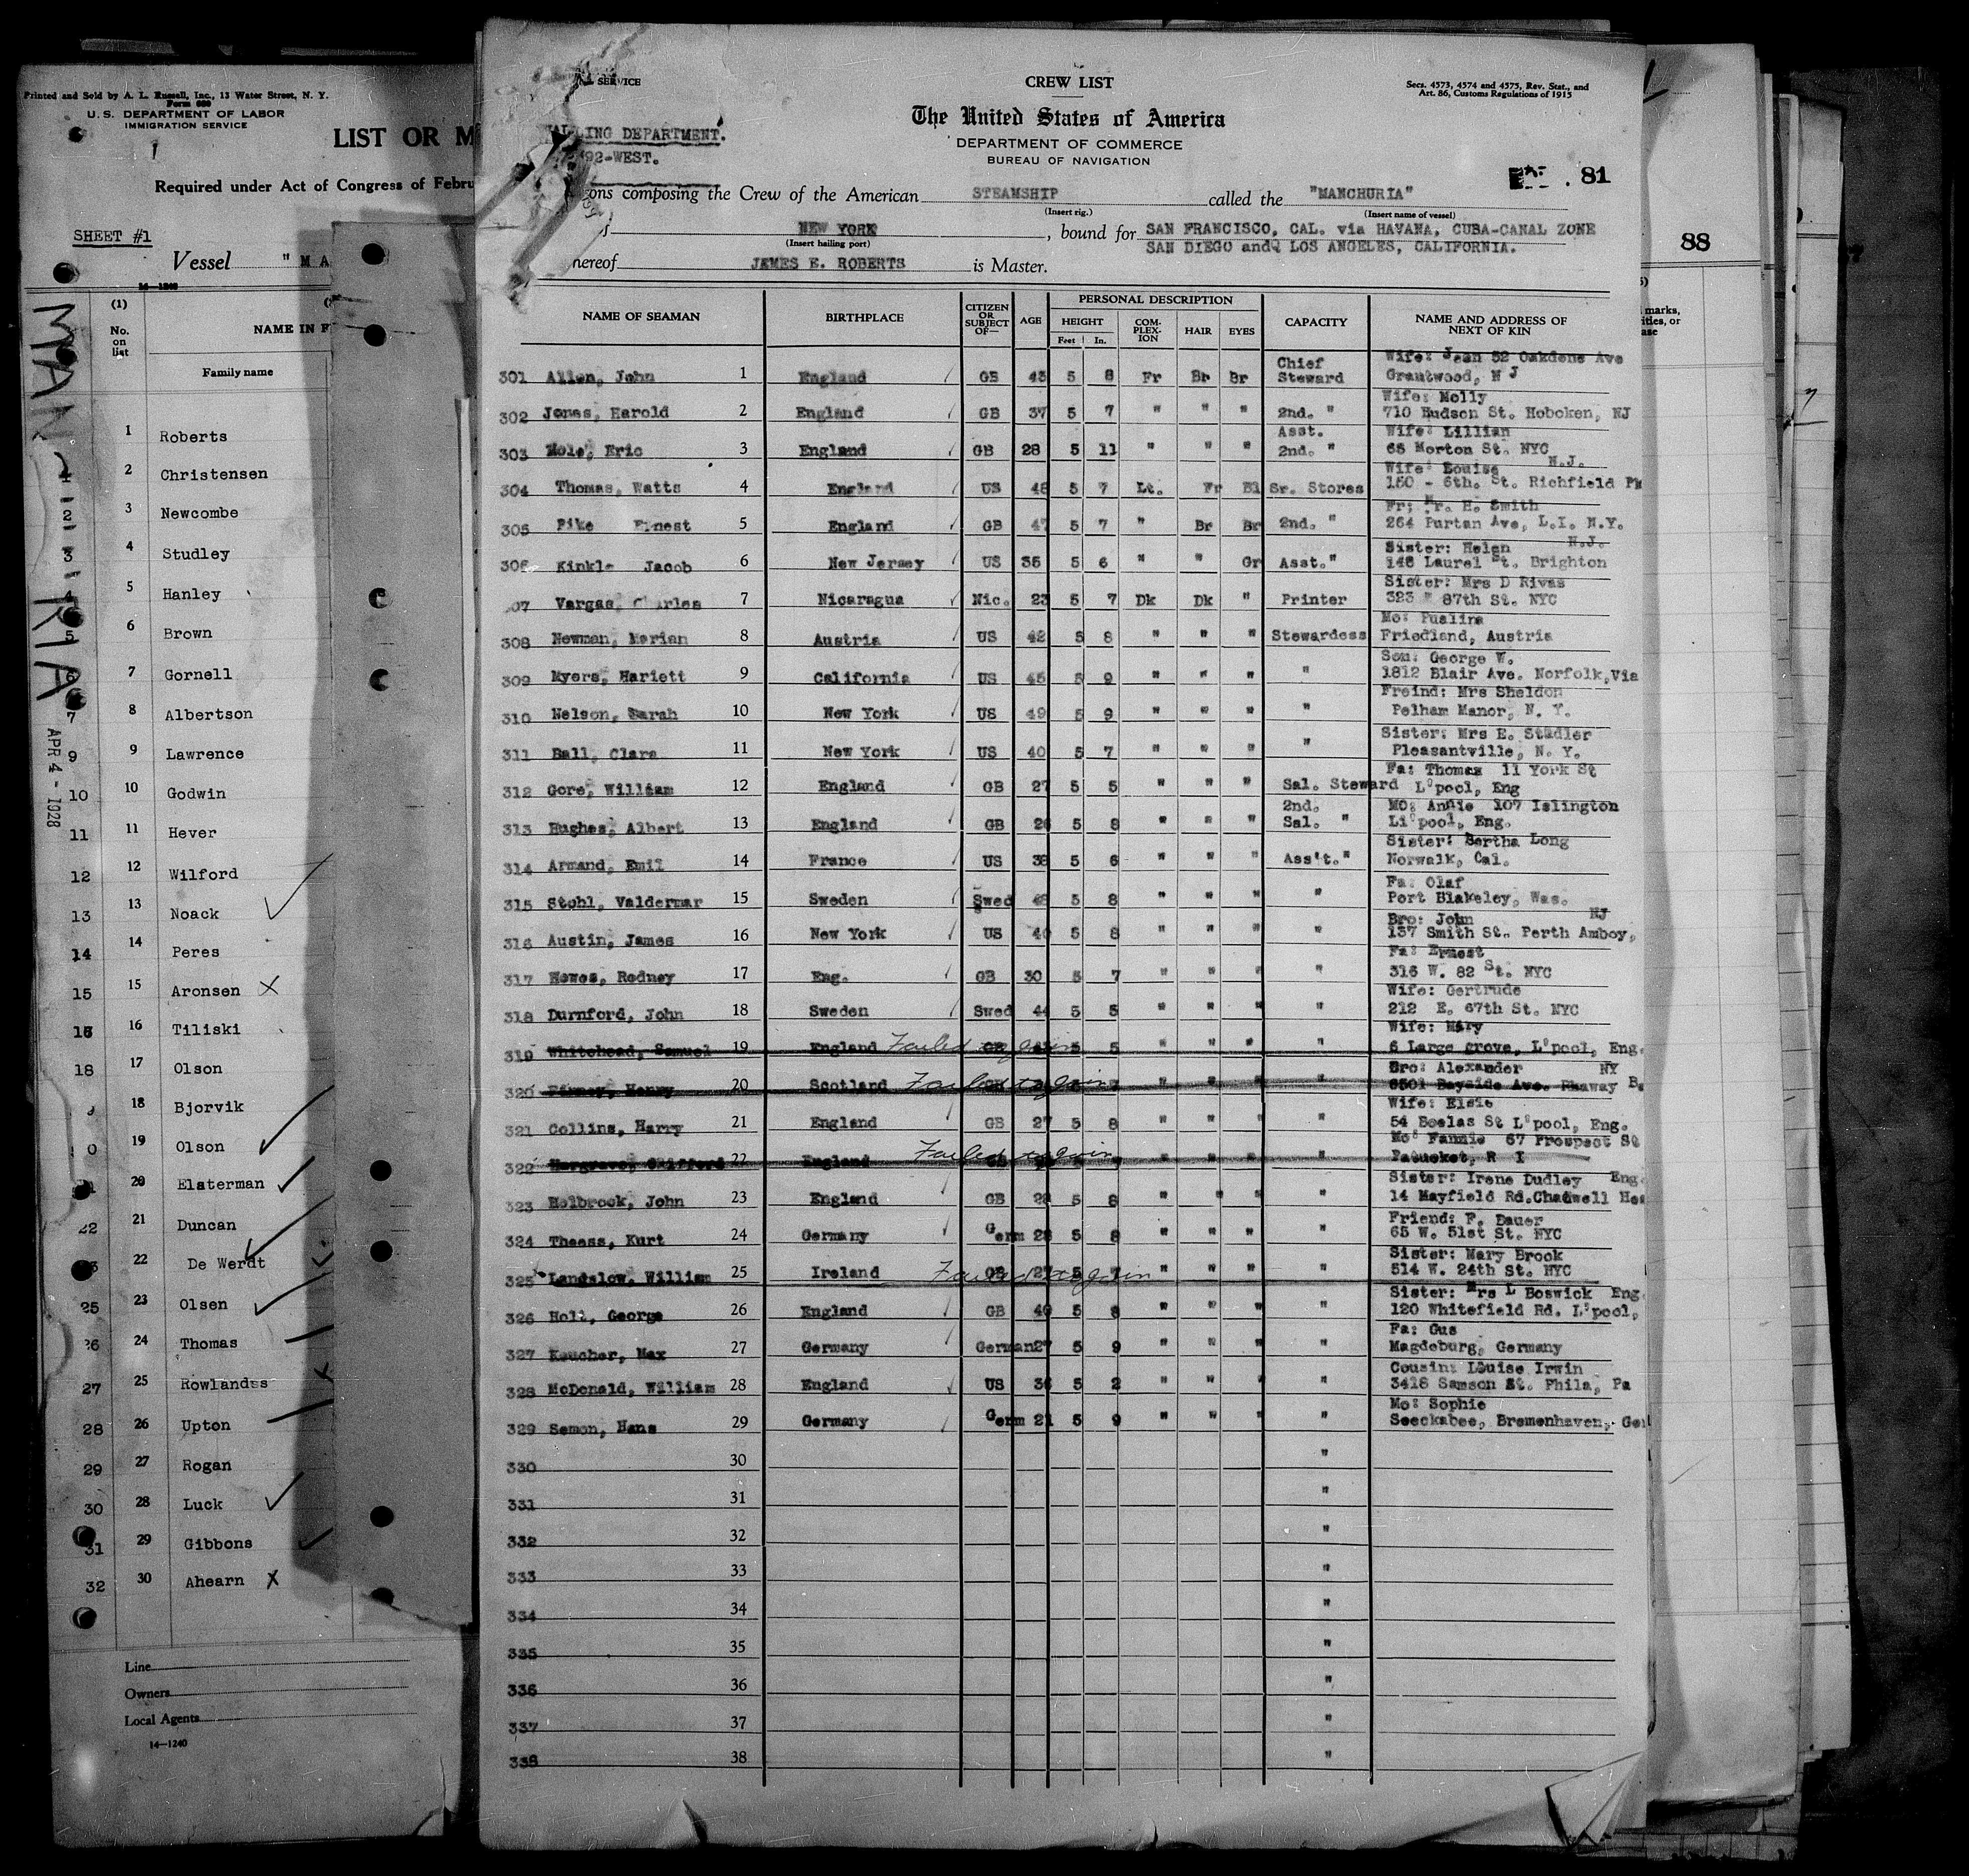 Printed and Sold by A. L. Russell, Inc., 13 Water Street, N. Y.
Form 680
U. S. DEPARTMENT OF LABOR
IMMIGRATION SERVICE
LIST OR M
Required under Act of Congress of Febru
SHEET #1
Vessel "M A
14-1240
(1)
No. on list
NAME IN F
Family name
1 Roberts
2 Christensen
3 Newcombe
4 Studley
5 Hanley
6 Brown
7 Gornell
8 Albertson
9 Lawrence
10 Godwin
11 Hever
12 Wilford
13 Noack
14 Peres
15 Aronsen X
16 Tiliski
17 Olson
18 Bjorvik
19 Olson
20 Elsterman
21 Duncan
22 De Werdt
23 Olsen
24 Thomas
25 Rowlandss
26 Upton
27 Rogan
28 Luck
29 Gibbons
30 Ahearn X
Line
Owners
Local Agents
14—1240
APR 4 - 1928
SERVICE
CREW LIST
Secs. 4573, 4574 and 4575, Rev. Stat., and
Art. 86, Customs Regulations of 1915
The United States of America
LING DEPARTMENT.
92-WEST.
DEPARTMENT OF COMMERCE
BUREAU OF NAVIGATION
81
ons composing the Crew of the American STEAMSHIP called the "MANCHURIA"
(Insert rig.) (Insert name of vessel)
NEW YORK, bound for SAN FRANCISCO, CAL. via HAVANA, CUBA-CANAL ZONE
(Insert hailing port)
SAN DIEGO and LOS ANGELES, CALIFORNIA.
hereof JAMES E. ROBERTS is Master.
NAME OF SEAMAN BIRTHPLACE CITIZEN OR SUBJECT OF— AGE PERSONAL DESCRIPTION CAPACITY NAME AND ADDRESS OF NEXT OF KIN
HEIGHT COM-PLEX-ION HAIR EYES
Feet In.
301 Allen, John 1 England GB 43 5 8 Fr Br Br Chief Steward Wife: Jean 52 Oakdene Ave Grantwood, N J
302 Jones, Harold 2 England GB 37 5 7 " " " 2nd. " Wife: Molly 710 Hudson St. Hoboken, NJ
303 Mole, Eric 3 England GB 28 5 11 " " " Asst. 2nd. " Wife: Lillian 65 Morton St. NYC
304 Thomas, Watts 4 England US 48 5 7 Lt. Fr Bl Sr. Stores Wife: Louise N.J. 150 - 6th. St. Richfield Pk
305 Pike Ernest 5 England GB 47 5 7 " Br Br 2nd. " Fr; Mr. H. Smith 264 Purtan Ave, L.I. N.Y.
306 Kinkle Jacob 6 New Jersey US 35 5 6 " " Gr Asst." Sister: Helen N.J. 146 Laurel St. Brighton
307 Vargas, Charles 7 Nicaragua Nic. 23 5 7 Dk Dk " Printer Sister: Mrs D Rivas 323 " 87th St. NYC
308 Newman, Marian 8 Austria US 42 5 8 " " " Stewardess Mo: Pualina Friedland, Austria
309 Myers, Hariett 9 California US 45 5 9 " " " " Son: George W. 1812 Blair Ave. Norfolk,Via
310 Nelson, Sarah 10 New York US 49 5 9 " " " " Freind: Mrs Sheldon Pelham Manor, N. Y.
311 Ball, Clara 11 New York US 40 5 7 " " " " Sister: Mrs E. Studler Pleasantville, N. Y.
312 Gore, William 12 England GB 27 5 5 " " " Sal. Steward Fa: Thomas 11 York St L'pool, Eng
313 Hughes, Albert 13 England GB 26 5 8 " " " 2nd. Sal. " Mo: Annie 107 Islington Li'pool, Eng.
314 Armand, Emil 14 France US 38 5 6 " " " Ass't." Sister: Bertha Long Norwalk, Cal.
315 Stohl, Valdermar 15 Sweden Swed 48 5 8 " " " " Fa: Olaf Port Blakeley, Was.
316 Austin, James 16 New York US 40 5 8 " " " " Bro: John NJ 137 Smith St. Perth Amboy,
317 Howes, Rodney 17 Eng. GB 30 5 7 " " " " Fa: Ernest 316 W. 82 St. NYC
318 Durnford, John 18 Sweden Swed 44 5 5 " " " " Wife: Gertrude 212 E. 67th St. NYC
319 Whitehead, Samuel 19 England Failed to join GB 5 5 " " " " Wife: Mary 6 Large grove, L'pool, Eng.
320 Henry 20 Scotland Failed to join " " " " Bro: Alexander NY 6501 Bayside Ave.
321 Collins, Harry 21 England GB 27 5 8 " " " " Wife: Elsie 54 Beelas St L'pool, Eng.
322 Hargrave, Clifford 22 England Failed to join GB " " " " Mo: Fannie 67 Prospect St Patucket, R I
323 Holbrook, John 23 England GB 28 5 8 " " " " Sister: Irene Dudley Eng. 14 Mayfield Rd.Chadwell Hea
324 Theess, Kurt 24 Germany Germ 28 5 8 " " " " Friend: F. Bauer 65 W. 51st St. NYC
325 Landslow, William 25 Ireland Failed to join GB 27 5 7 " " " " Sister: Mary Brook 514 W. 24th St. NYC
326 Holl, George 26 England GB 40 5 8 " " " " Sister: Mrs L Boswick Eng. 120 Whitefield Rd. L'pool,
327 Kaucher, Max 27 Germany German 27 5 9 " " " " Fa: Gus Magdeburg, Germany
328 McDonald, William 28 England US 36 5 2 " " " " Cousin: Louise Irwin 3418 Samson St. Phila, Pa
329 Semon, Hans 29 Germany Germ 21 5 9 " " " " Mo: Sophie Seeckabee, Bremenhaven, Ger
330 30 "
331 31 "
332 32 "
333 33 "
334 34 "
335 35 "
336 36 "
337 37 "
338 38 "
88
marks,
ities, or
ase